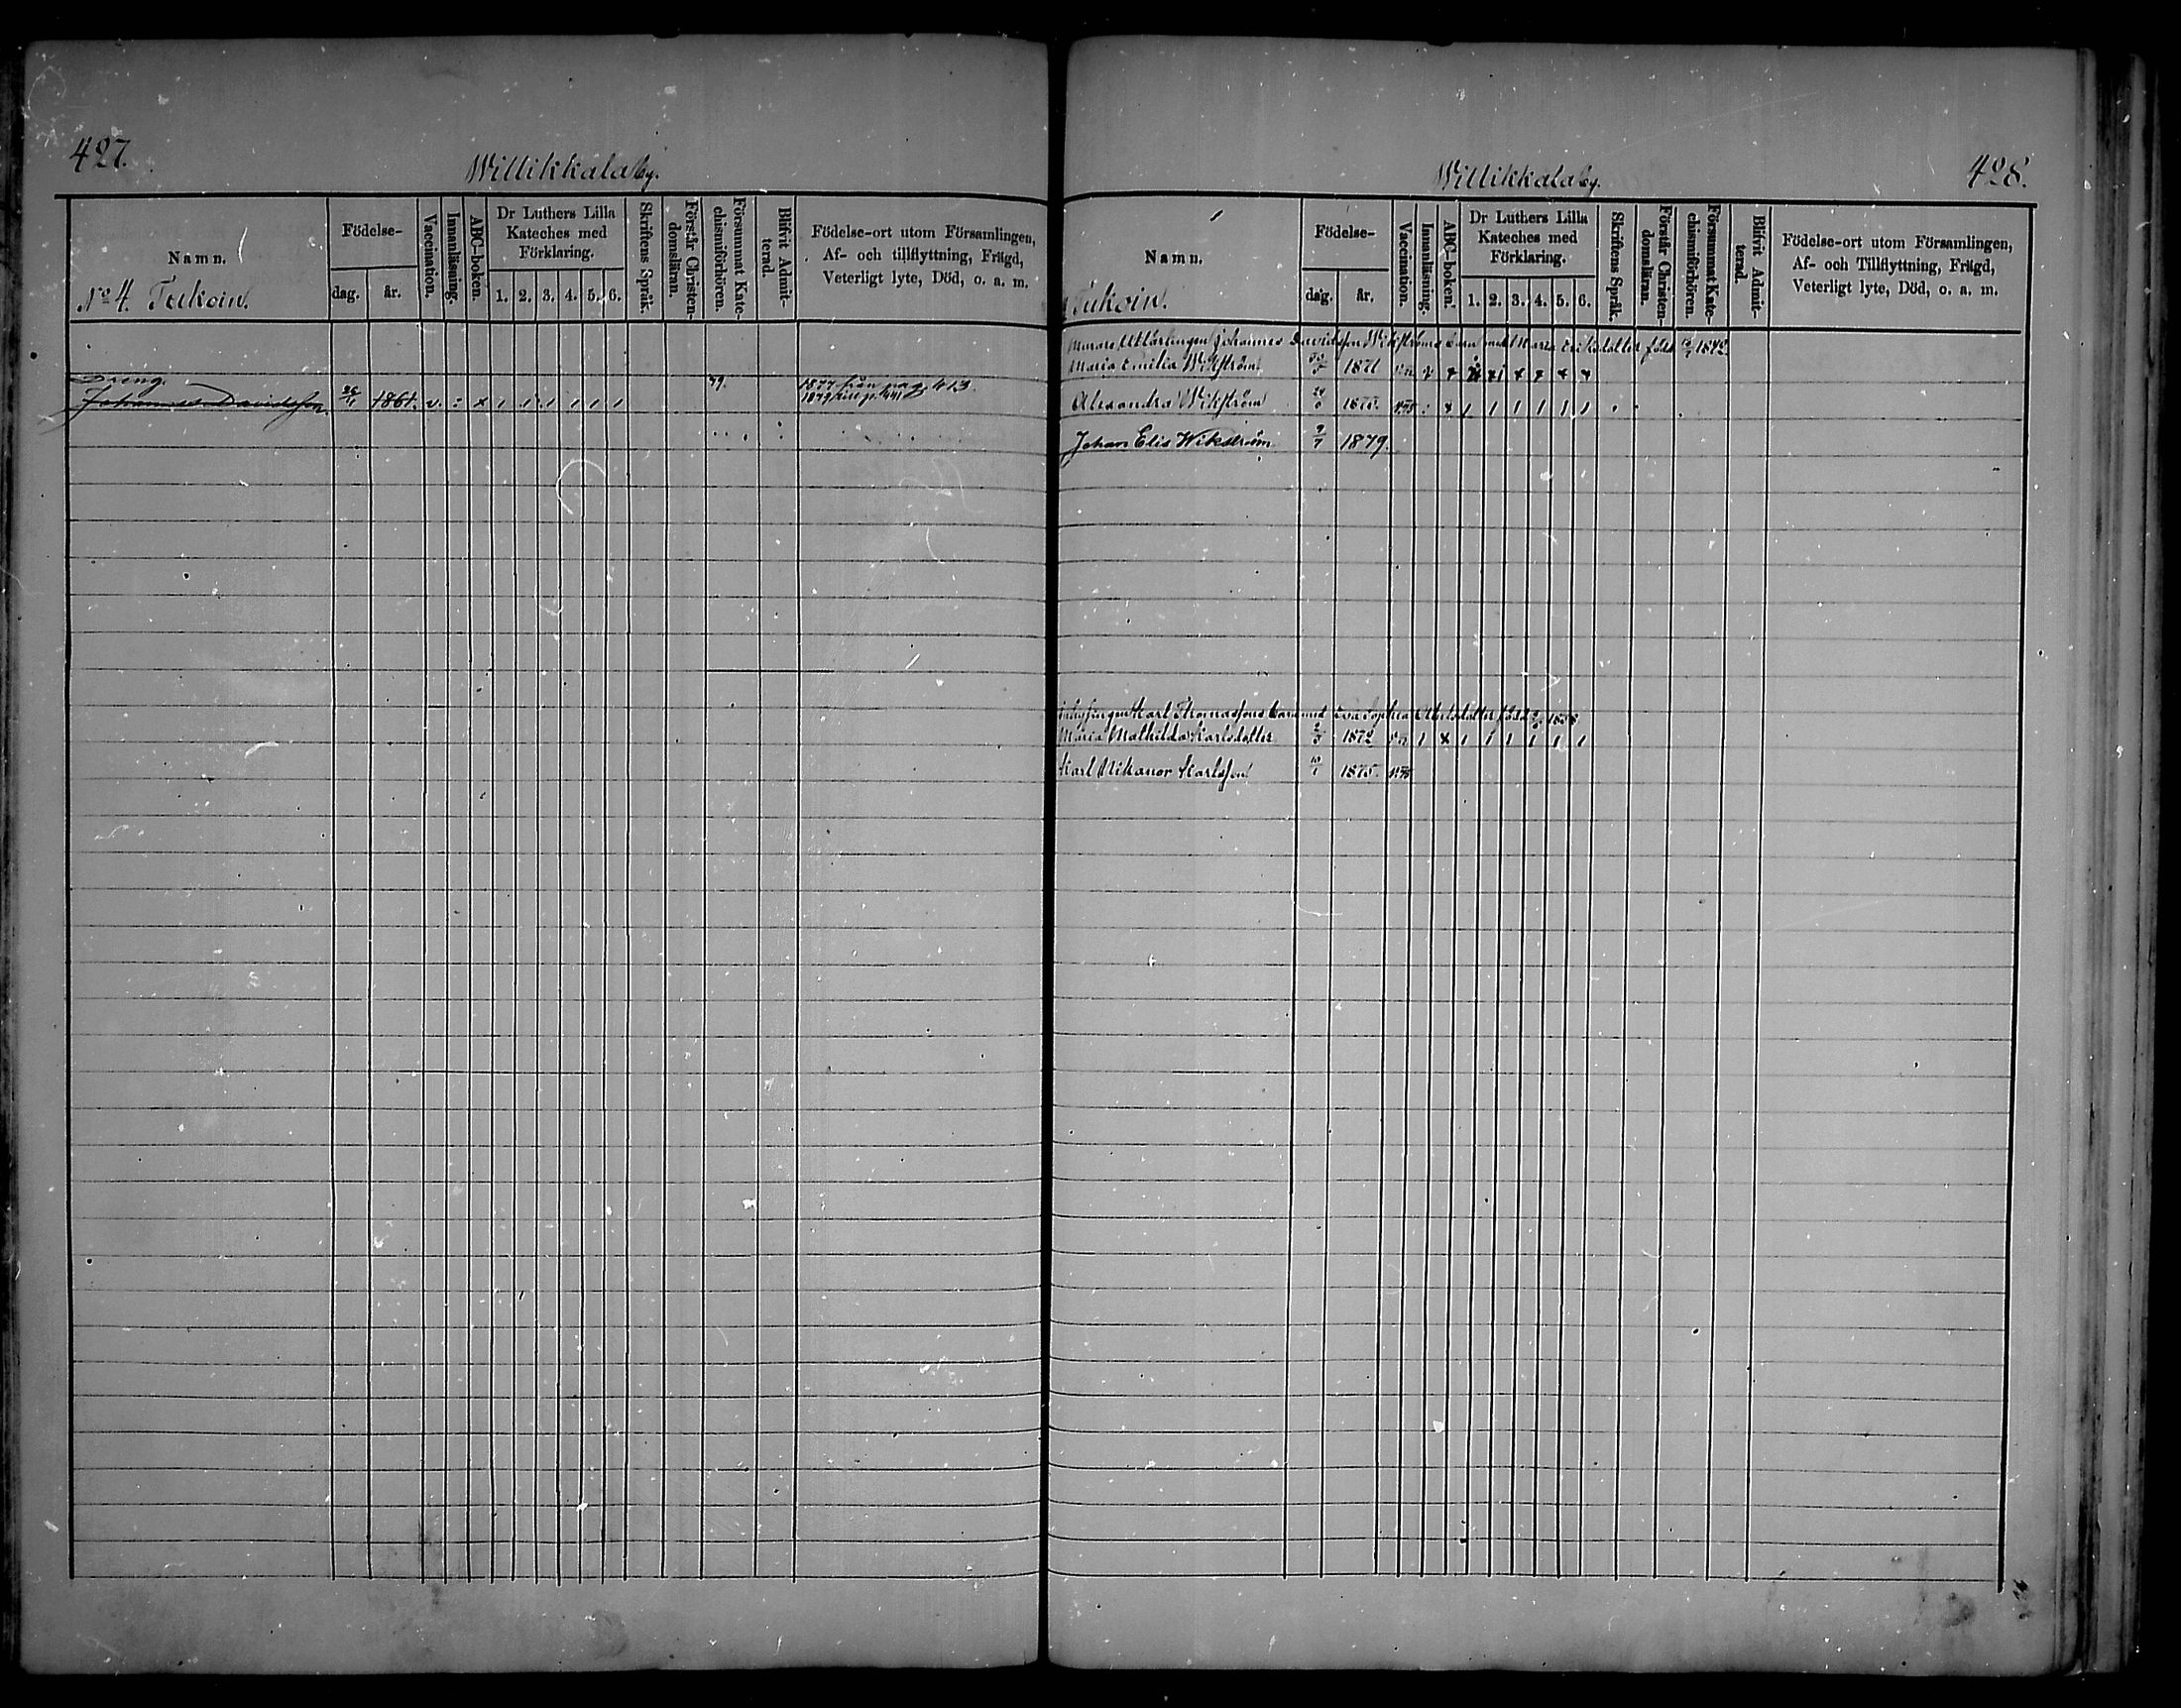 427.
Willikkala by.
Namn.
No 4. Tukoin.
Födelse-
dag.
år.
Vaccination.
Innanläsning.
ABC-boken.
Dr Luthers Lilla
Kateches med
Förklaring.
1. 2. 3. 4. 5. 6.
Skriftens Språk.
Förstår Christen-
domsläran.
Försummat Kate-
chismiförhören.
Blifvit Admit-
terad.
Födelse-ort utom Församlingen,
Af- och tillflyttning, Frägd,
Veterligt lyte, Död, o. a. m.
Dreng.
Johannes Davidsson. 26/11 1861. v. : x 1 1 1 1 1 1 79. 1877 från pag. 413.
1879 p. 441
Willikkala by.
428.
Namn.
Tukoin.
Födelse-
dag.
år.
Vaccination.
Innanläsning.
ABC-boken.
Dr Luthers Lilla
Kateches med
Förklaring.
1. 2. 3. 4. 5. 6.
Skriftens Språk.
Förstår Christen-
domsläran.
Försummat Kate-
chismiförhören.
Blifvit Admit-
terad.
Födelse-ort utom Församlingen,
Af- och Tillflyttning, Frägd,
Veterligt lyte, Död, o. a. m.
Johannes Davidsson Wikströms barn med Maria Eriksdotter född 1842.
Maria Emilia Wikström 1871
Alexandra Wikström 1875.
Johan Elis Wikström 9/7 1879.
Karl Thomassons barn med Eva Sophia född 1838.
Maria Mathilda Karlsdotter 1872
Karl Nikanor Karlsson 10/1 1875.